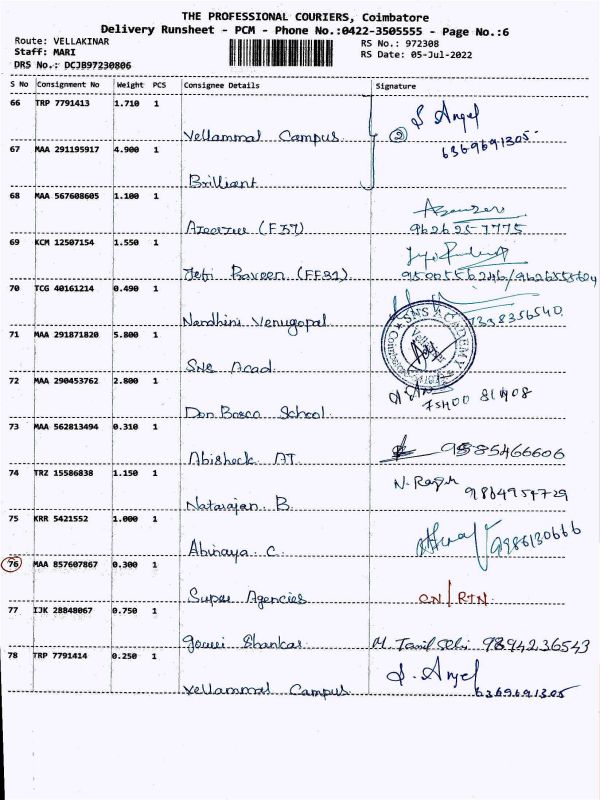 THE PROFESSIONAL COURIERS, Coimbatore
Delivery Runsheet - PCM - Phone No.:0422-3505555 - Page No.:6
Route: VELLAKINAR
RS No.: 972308
Staff: MARI
RS Date: 05-Jul-2022
DRS No.: DCJB97230806
S No Consignment No Weight PCS Consignee Details Signature
66 TRP 7791413 1.710 1
Vellammal Campus
② S Angel
6369691305
67 MAA 291195917 4.900 1
Brilliant
68 MAA 567608605 1.100 1
(F37)
9626257775
69 KCM 12507154 1.550 1
Jefri Praveen (FF31)
70 TCG 40161214 0.490 1
Nandhini Venugopal
7338356540
71 MAA 291871820 5.800 1
SNS Acad.
SNS ACADEMY
72 MAA 290453762 2.800 1
Don Bosco School
75400 81408
73 MAA 562813494 0.310 1
Abisheck AT
9585466606
74 TRZ 15586838 1.150 1
Natarajan B
75 KRR 5421552 1.000 1
Abinaya C
76 MAA 857607867 0.300 1
Super Agencies
CN/RTN
77 IJK 28848067 0.750 1
Gowri Shankar
M. Tamil Selvi 9894236543
78 TRP 7791414 0.250 1
Vellammal Campus
S. Angel
6369691305